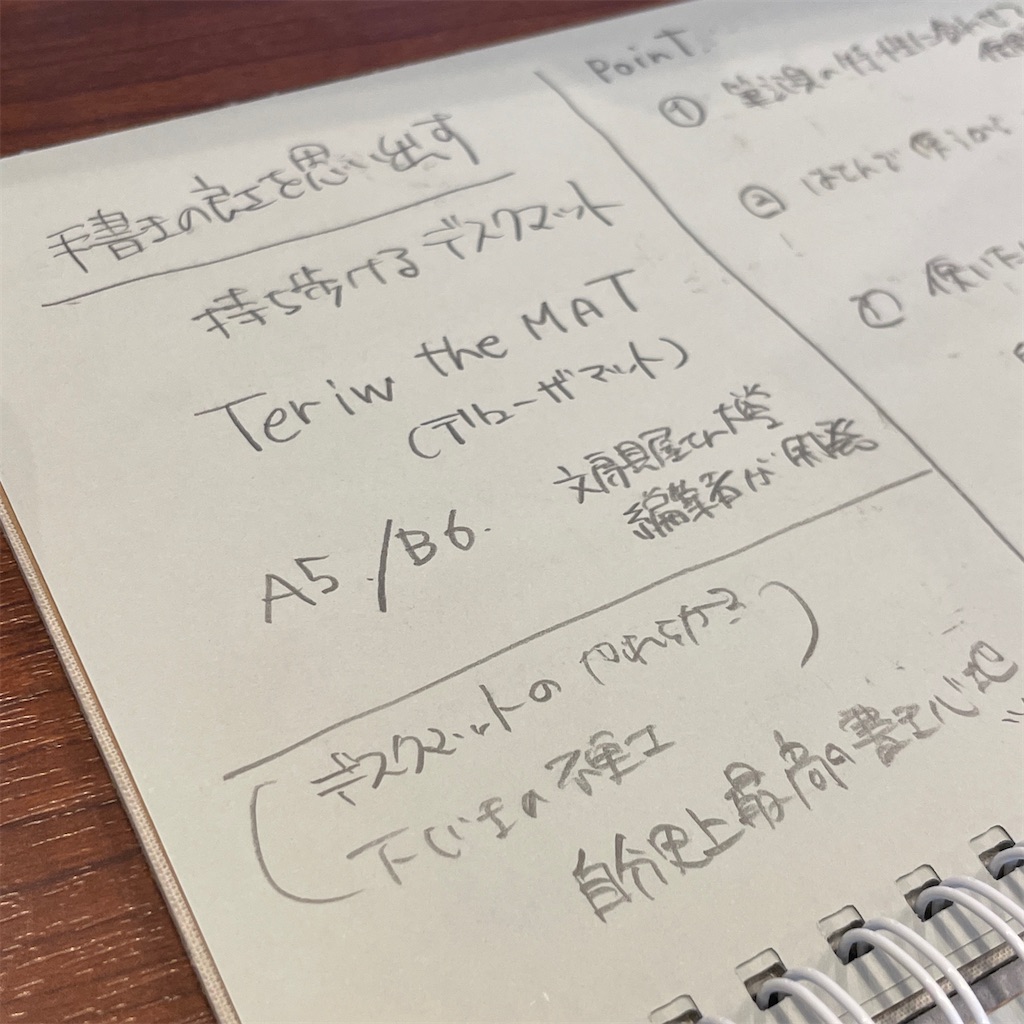 手書きの良さを思い出す
持ち歩けるデスクマット
Teriw the MAT
(テリューザマット)
文房具屋さん大賞
編集者が開発
A5/B6.
デスクマットのやわらかさ
下じきの硬さ
自分史上最高の書き心地
Point
① 筆記具の特性に合わせて
② はさんで使うから
① 使いた